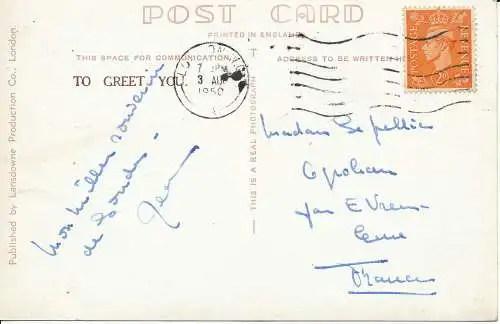 POST CARD
PRINTED IN ENGLAND
THIS SPACE FOR COMMUNICATION
ADDRESS TO BE WRITTEN HE
TO GREET YOU.
7 PM
3 AU
1950
POSTAGE
REVENUE
2D
Mon meilleur souvenir
de Londres
Jean
Published by Lansdowne Production Co., London
THIS IS A REAL PHOTOGRAPH
Madame Le pellier
par
Eure
France